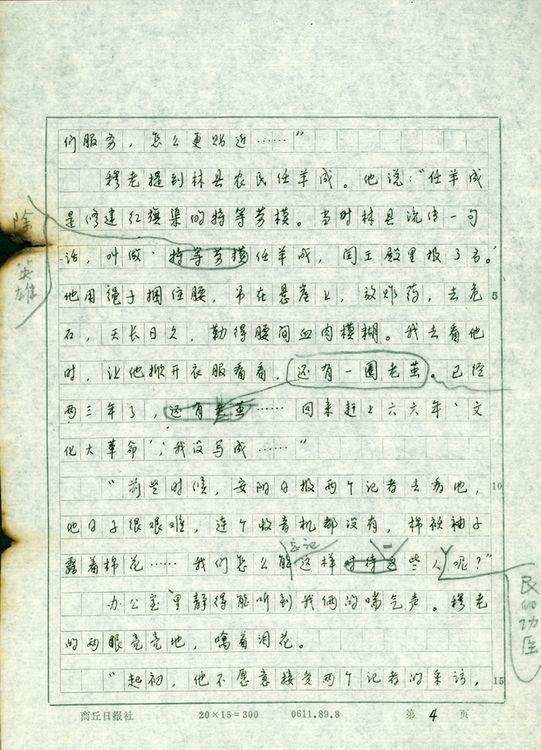 们服务，怎么更贴近……”
穆老提到林县农民任羊成。他说：“任羊成
是修建红旗渠的特等劳模。当时林县流传一句
话，叫做‘特等劳模任羊成，阎王殿里报了名。’
除
英雄
他用绳子捆住腰，吊在悬崖上，放炸药，去危 5
石，天长日久，勒得腰间血肉模糊。我去看他
时，让他掀开衣服看看，还有一圈老茧。已经
两三年了，还有老茧……回来赶上六六年‘文
化大革命’，我没写成……”
“前些时候，安阳日报两个记者去看他， 10
他日子很艰难，连个收音机都没有，棉袄袖子
忘记
露着棉花……我们怎么能这样对待这些人呢？”
民的功臣
办公室里静得能听到我俩的喘气声。穆老
的两眼亮亮地，噙着泪花。
“起初，他不愿意接受两个记者的采访， 15
商丘日报社 20×15=300 0611.89.8 第 4 页